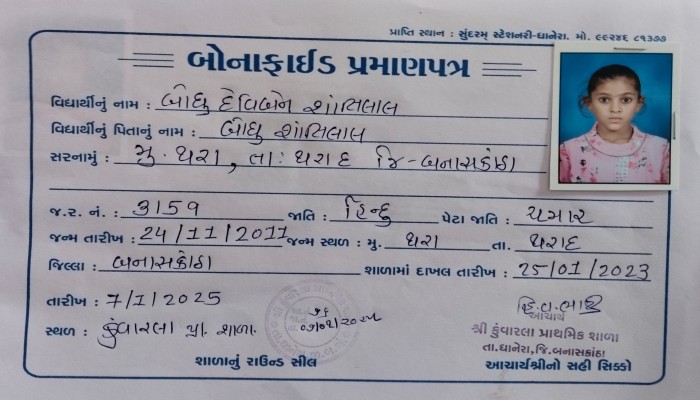 પ્રાપ્તિ સ્થાન : સુંદરમ્ સ્ટેશનરી-ધાનેરા. મો. ૯૯૨૪૬ ૮૧૩૭૭
બોનાફાઈડ પ્રમાણપત્ર
વિદ્યાર્થીનું નામ : બોધુ દેવિબેન શાંતિલાલ
વિદ્યાર્થીનું પિતાનું નામ : બોધુ શાંતિલાલ
સરનામું : મુ. થરા, તા: થરાદ જિ-બનાસકાંઠા
જ.ર. નં. : 3159 જાતિ : હિન્દુ પેટા જાતિ : ચમાર
જન્મ તારીખ : 24/11/2011 જન્મ સ્થળ : મુ. થરા તા. થરાદ
જિલ્લા : બનાસકાંઠા શાળામાં દાખલ તારીખ : 25/01/2023
તારીખ : 7/1/2025
સ્થળ : કુંવારલા પ્રા. શાળા.
આચાર્ય
શ્રી કુંવારલા પ્રાથમિક શાળા
તા.ધાનેરા,જિ.બનાસકાંઠા
શાળાનું રાઉન્ડ સીલ
આચાર્યશ્રીનો સહી સિક્કો